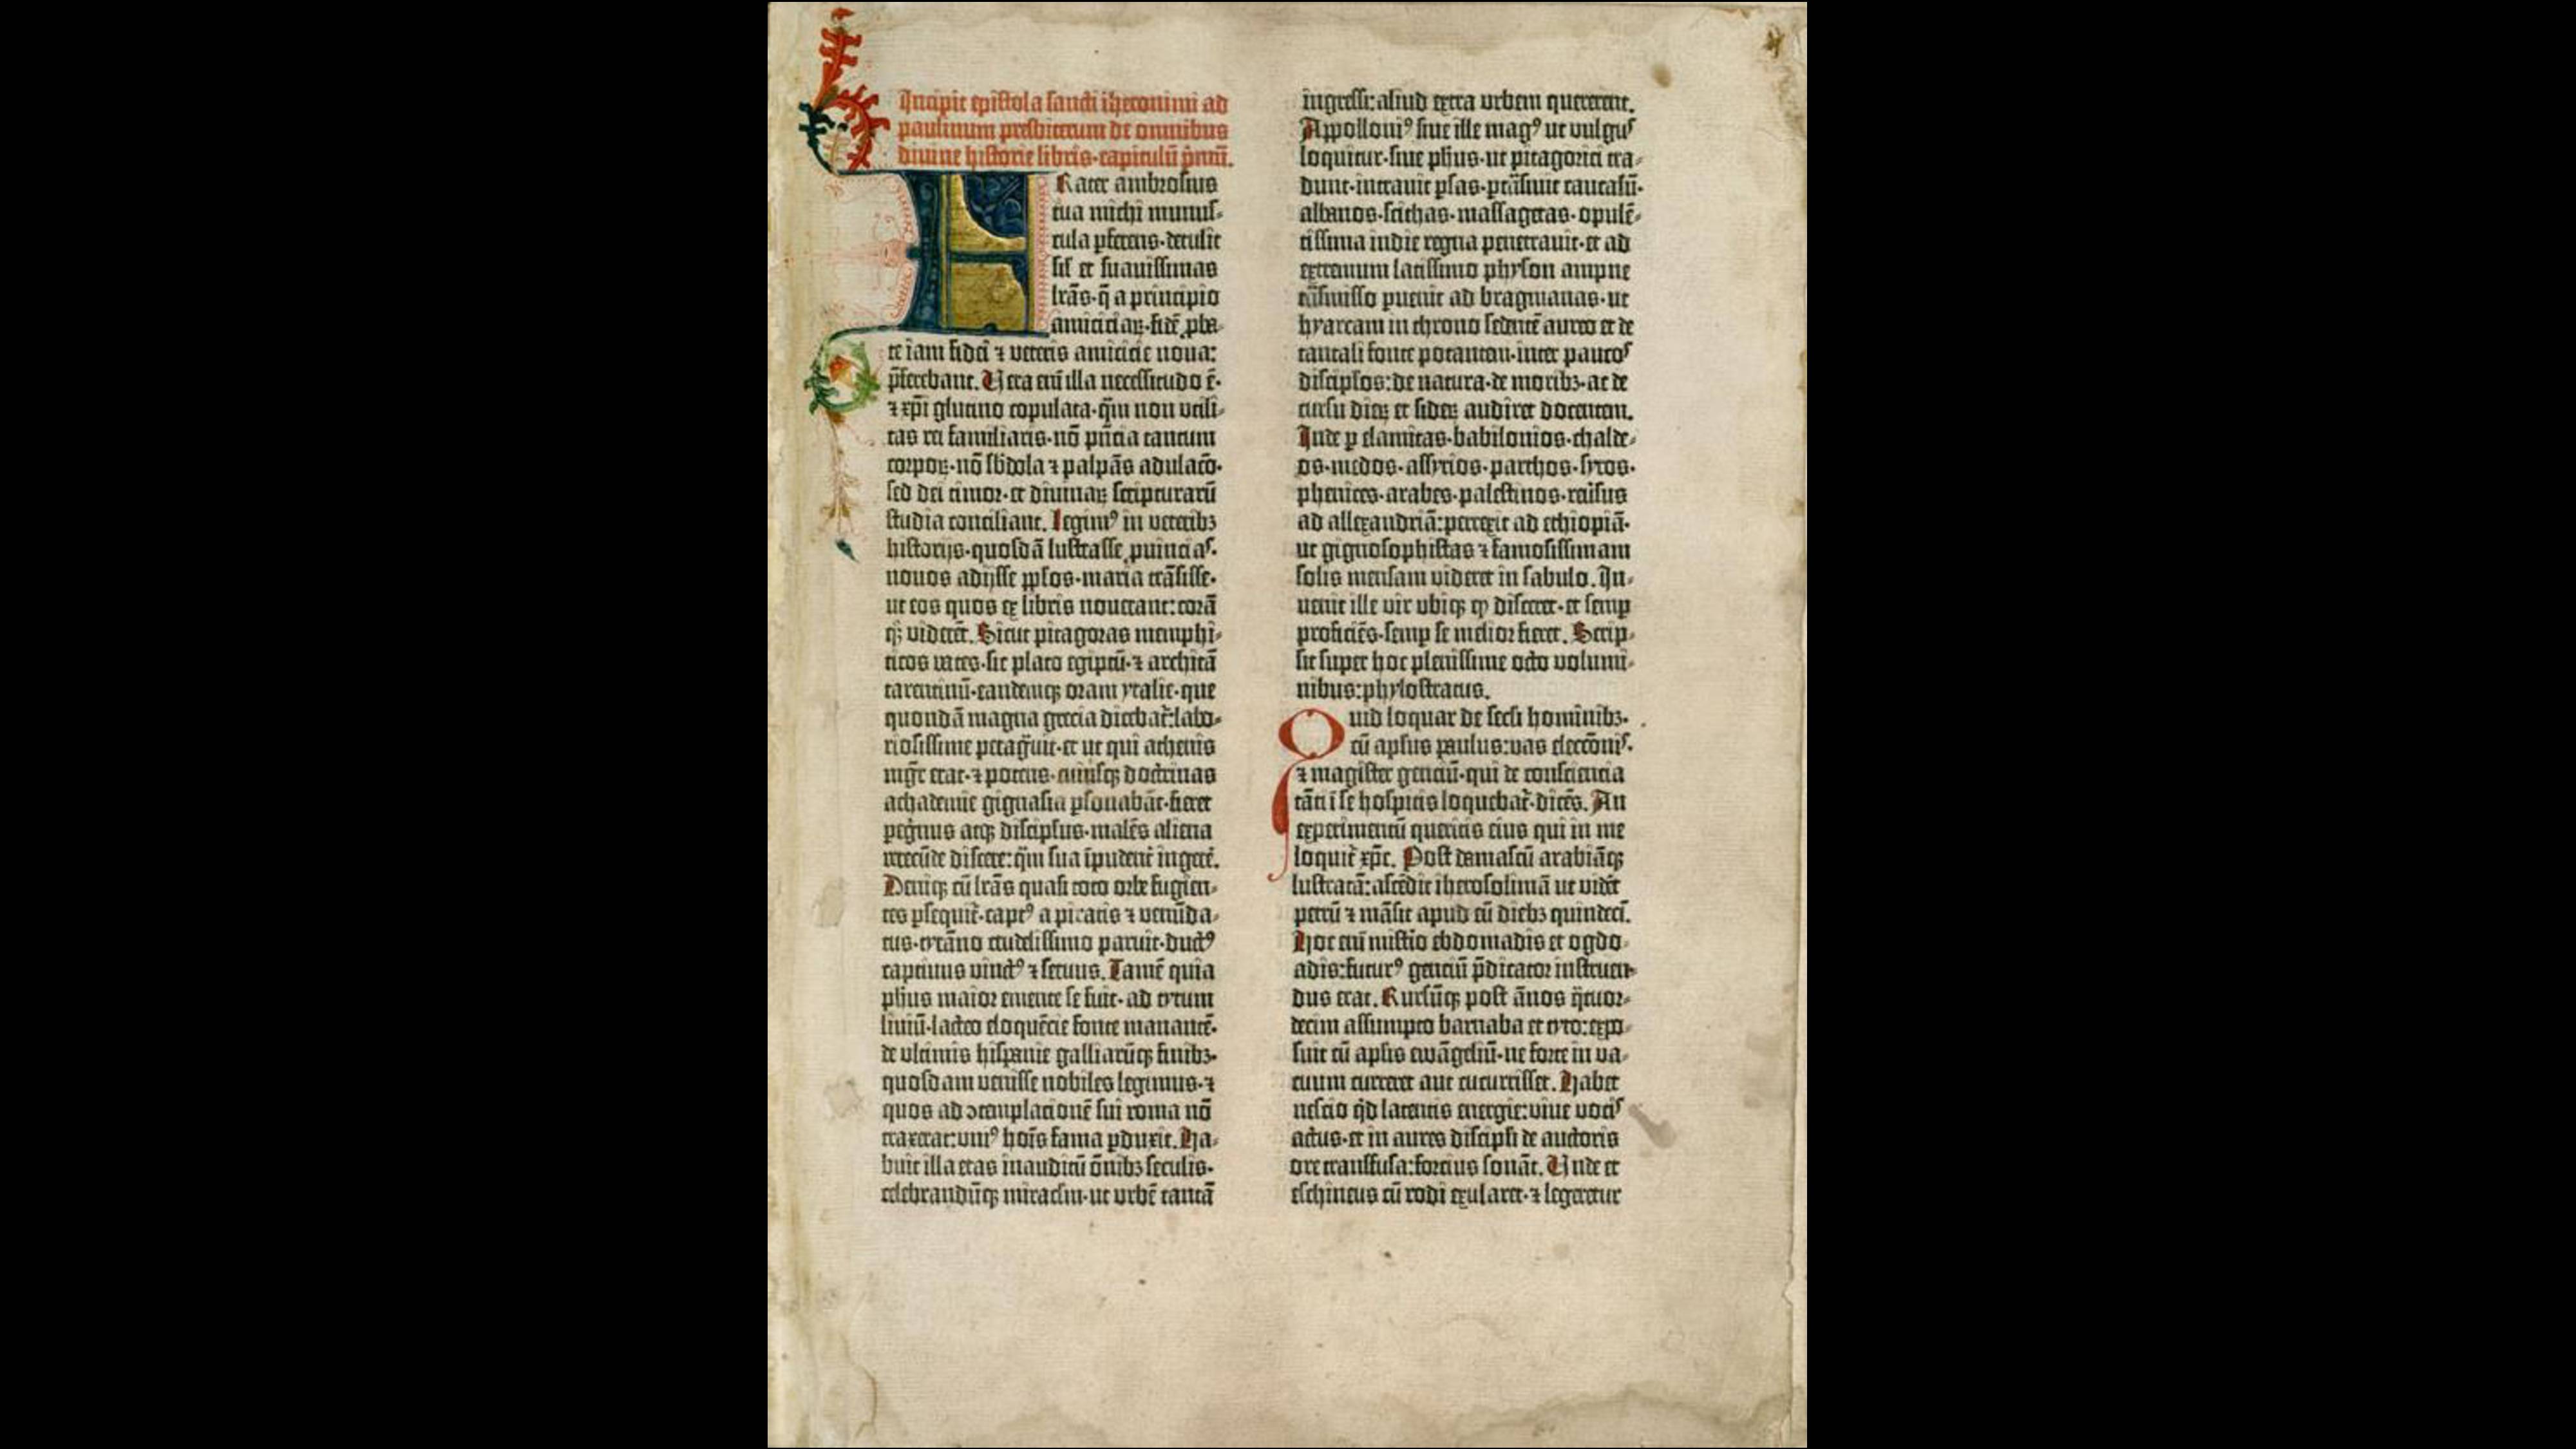 Incipit epistola sancti iheronimi ad
paulinum presbiterum de omnibus
divine historie libris·capitulū p̄mū.
Frater ambrosius
tua michi munus-
cula ꝑferens·detulit
sil̛ et suavissimas
lr̄as·q̄ a principio
amiciciaꝝ·fidē ꝓba-
te iam fidei ⁊ veteris amicicie noua:
p̄ferebant. Uera eni̅ illa necessitudo ē·
⁊ xp̄i glutino copulata·q̄m non utili-
tas rei familiaris·nō pn̄cia tantum
corpoꝝ·nō sb̄dola ⁊ palpās adulac̄o·
sed dei timor·et diuinaꝝ scripturarū
studia conciliant. Legimꝰ in veteribꝫ
historijs·quosdā lustrasse ꝓuincias·
nouos adijsse pp̄los·maria trāsisse·
ut eos quos ex libris nouerant: corā
qꝫ viderēt. Sicut pitagoras memphi-
ticos vates·sic plato egiptū·⁊ architā
tarentinū·eandemqꝫ oram ytalie·que
quondā magna grecia dicebat̄: labo-
riosissime peragr̄uit·et ut qui athenis
mgr̄ erat·⁊ potens·cuiusqꝫ doctrinas
achademie gignasia ꝑsonabāt·fieret
ꝑegr̄inus atqꝫ discipl̄us·malēs aliena
verecūde discere: q̄m sua īpudent̄ ingerē̛.
Deniqꝫ cū lr̄as quasi toto orbe fugien-
tes ꝑsequit̄·captꝰ a piratis ⁊ venūda-
tus·tyrāno crudelissimo paruit·ductꝰ
captiuus vinctꝰ ⁊ seruus. Tamē quia
ph̄us maior emente se fuit·ad tytum
liuiū·lacteo eloquēcie fonte manantē·
de ultimis hispanie galliarūqꝫ finibꝫ·
quosdam venisse nobiles legimus·⁊
quos ad ꝯtemplacionē sui roma nō
traxerat: uniꝰ hoīs fama ꝑduxit. Ha-
buit illa etas inauditū ōnibꝫ seculis·
celebrandūqꝫ miraclm̄·ut urbē tantā
ingressi: aliud extra urbem quererent.
Appolloniꝰ siue ille magꝰ ut vulgus
loquitur·siue ph̄us·ut pitagorici tra-
dunt·intrauit ꝑsas·ꝑtrāsiuit caucasū·
albanos·scithas·massagetas·opulē-
tissima indie regna penetrauit·et ad
extremum latissimo physon ampne
trāsmisso ꝑuenit ad bragmanas·ut
hyarcam in throno sedentē aureo et de
tantali fonte potantem·inter paucos
discipl̄os: de natura·de moribꝫ·ac de
cursu dieꝝ et sideꝝ audiret docentem.
Inde ꝑ elamitas·babilonios·chalde-
os·medos·assyrios·parthos·syros·
phenices·arabes·palestinos·reūsus
ad allexandriā: perrexit ad ethiopiā·
ut gignosophistas ⁊ famosissimam
solis mensam videret in sabulo. In-
uenit ille vir ubiqꝫ qͥ disceret·et semꝑ
proficiēs·semꝑ se melior fieret. Scrip-
sit super hoc plenissime octo volumi-
nibus: phylostratus.
Quid loquar de secl̄i hominibꝫ·
cū apl̄us paulus: vas eleccōnis·
⁊ magister genciū·qui de consciencia
tāti ī se hospitis loquebat̄·dicēs. An
experimentū queritis eius qui in me
loquit̄ xp̄c. Post damascū arabiāqꝫ
lustratā: ascēdit iherosolimā ut vid̄et
petrū ⁊ māsit apud eū diebꝫ quindecī.
Hoc eni̅ mistīo ebdomadis et ogdo-
adis: futurꝰ genciū p̄dicator instruen-
dus erat. Rursūqꝫ post ānos q̄tuor-
decim assumpto barnaba et tyto: expo-
suit cū apl̄is ewāgeliū·ne forte in va-
cuum curreret aut cucurrisset. Habet
nescio qͥd latentis energie: viue vocis
actus·et in aures discipl̄i de auctoris
ore transfusa: forcius sonāt. Unde et
eschineus cū rodi exularet·⁊ legeretur